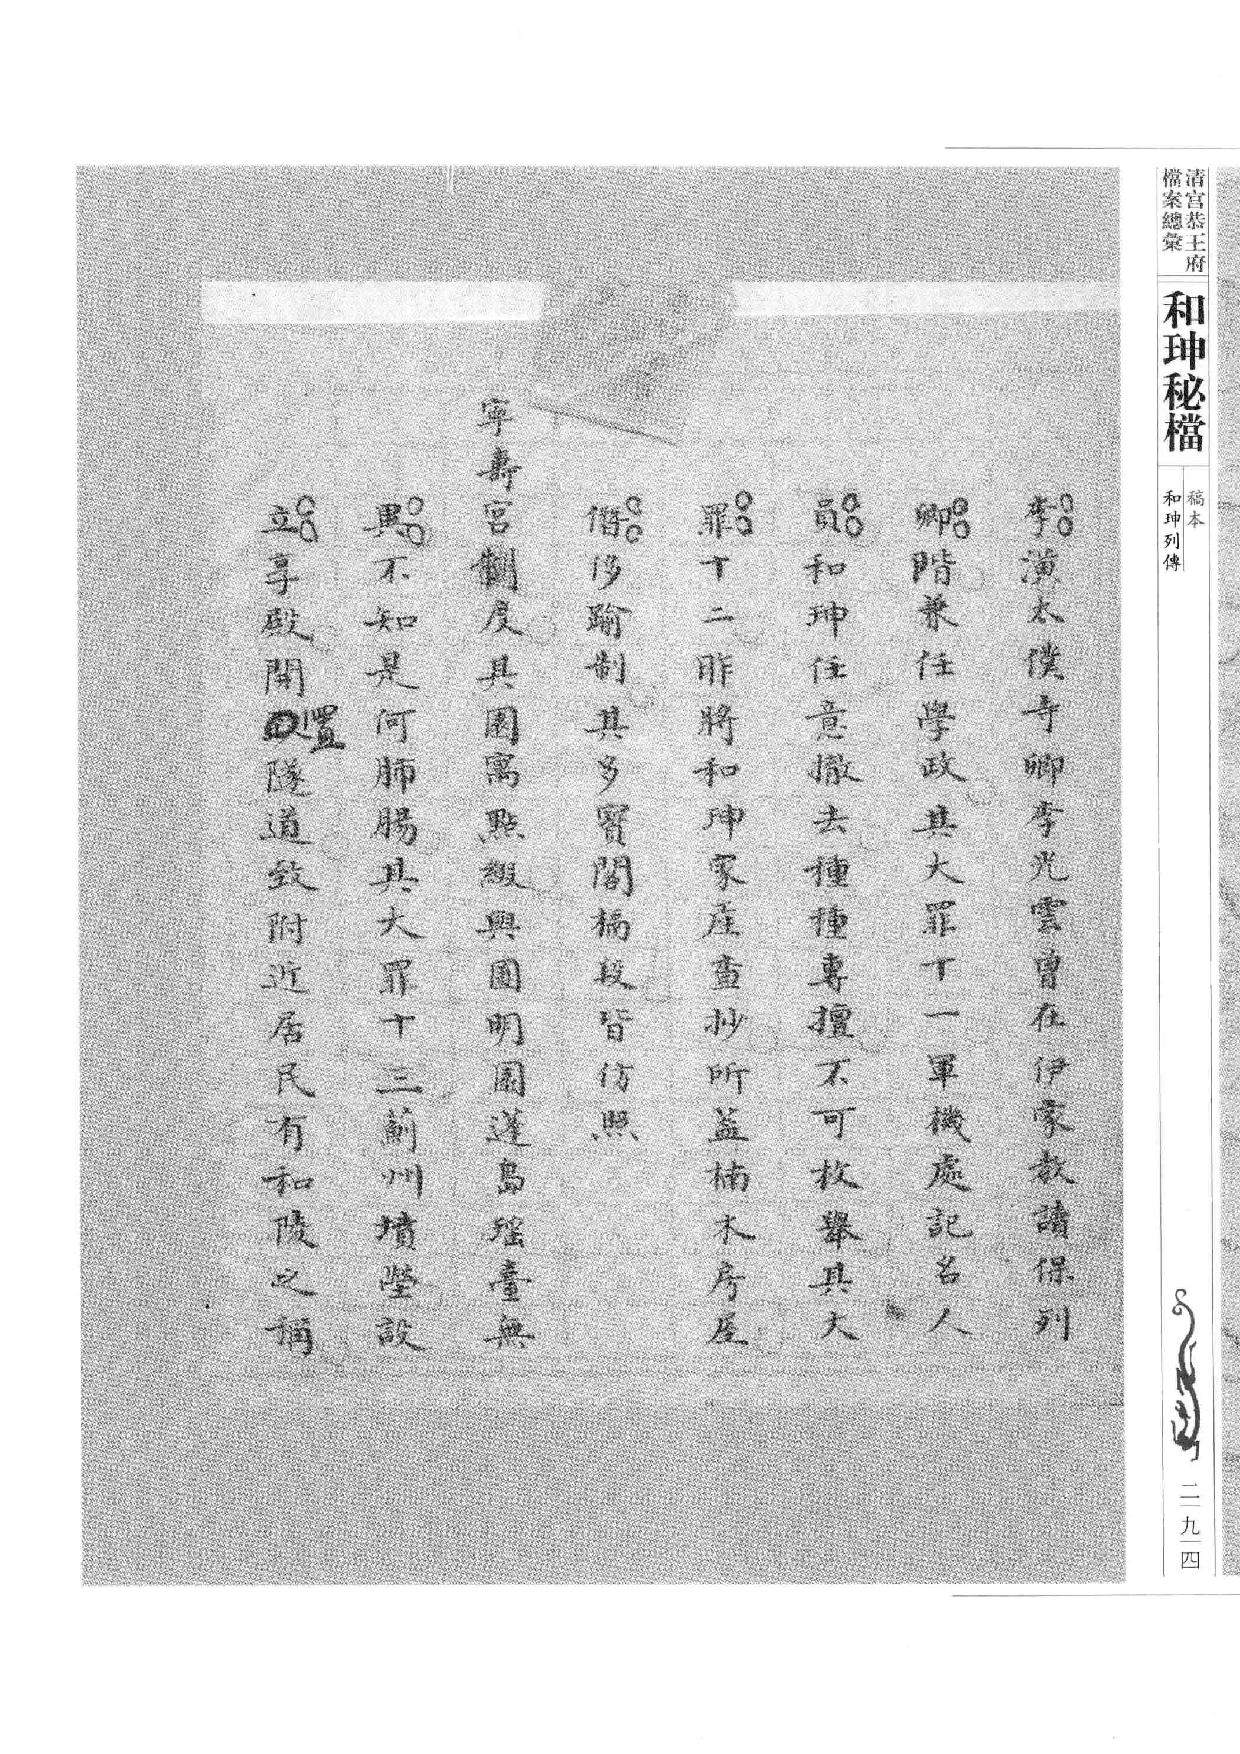 清宮恭王府
檔案總彙
和珅秘檔
稿本
和珅列傳
二九四
李潢太僕寺卿李光雲曾在伊家教讀保列
卿階兼任學政其大罪十一軍機處記名人
員和珅任意撤去種種專擅不可枚舉其大
罪十二昨將和珅家產查抄所蓋楠木房屋
僭侈踰制其多寶閣槅段皆仿照
寧壽宮制度其園寓點綴與圓明園蓬島瑤臺無
異不知是何肺腸其大罪十三薊州墳塋設
立享殿開置隧道致附近居民有和陵之稱